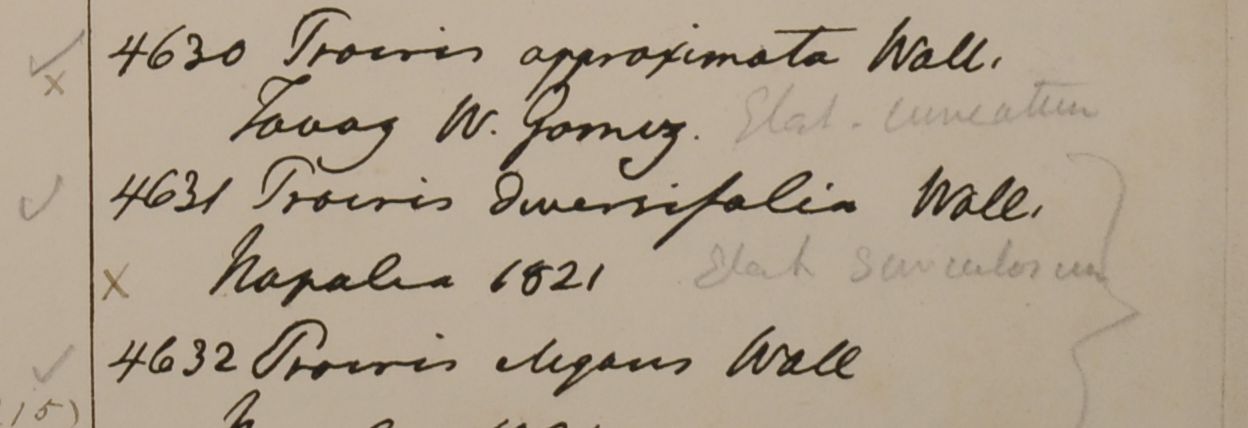 4630 Procris approximata Wall.
Tavoy W. Gomez. Elat. cuneatum
4631 Procris diversifolia Wall.
x Napalia 1821 Elat. surculosum
4632 Procris elegans Wall
15)